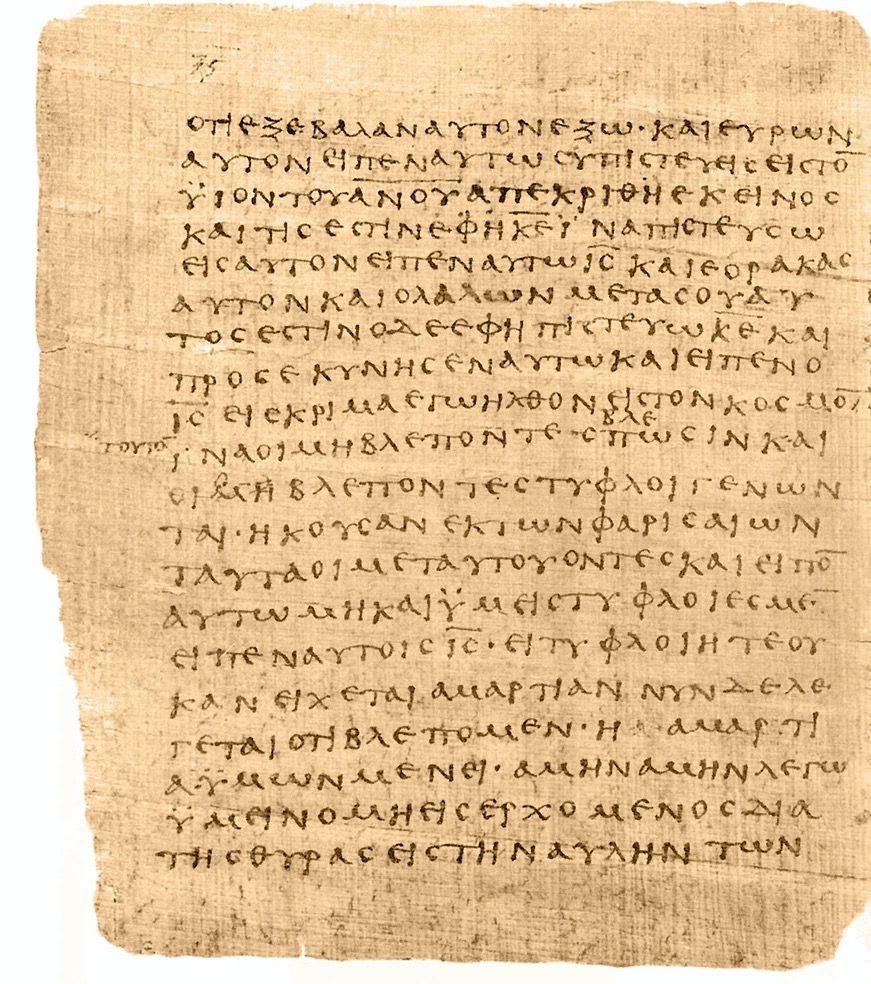 ΟΤΙΕΞΕΒΑΛΑΝΑΥΤΟΝΕΞΩ·ΚΑΙΕΥΡΩΝ
ΑΥΤΟΝΕΙΠΕΝΑΥΤΩСΥΠΙСΤΕΥΕΙСΕΙСΤΟ̅
ΫΙΟΝΤΟΥΑ̅Ν̅Ο̅Υ̅ΑΠΕΚΡΙΘΗΕΚΕΙΝΟС
ΚΑΙΤΙСΕСΤΙΝΕΦΗΚ̅Ε̅ΪΝΑΠΙСΤΕΥСΩ
ΕΙСΑΥΤΟΝΕΙΠΕΝΑΥΤΩΙ̅С̅ΚΑΙΕΟΡΑΚΑС
ΑΥΤΟΝΚΑΙΟΛΑΛΩΝΜΕΤΑСΟΥΑΥ
ΤΟСΕСΤΙΝΟΔΕΕΦΗΠΙСΤΕΥΩΚ̅Ε̅ΚΑΙ
ΠΡΟСΕΚΥΝΗСΕΝΑΥΤΩΚΑΙΕΙΠΕΝΟ
Ι̅С̅ΕΙСΚΡΙΜΑΕΓΩΗΛΘΟΝΕΙСΤΟΝΚΟСΜΟ̅
ΒΛΕ
ΤΟΥΤΟ̅
ΪΝΑΟΙΜΗΒΛΕΠΟΝΤΕСΠΩСΙΝΚΑΙ
ΟΙΒΛΕΠΟΝΤΕСΤΥΦΛΟΙΓΕΝΩΝ
ΤΑΙ·ΗΚΟΥСΑΝΕΚΤΩΝΦΑΡΙСΑΙΩΝ
ΤΑΥΤΑΟΙΜΕΤΑΥΤΟΥΟΝΤΕСΚΑΙΕΙΠΟ̅
ΑΥΤΩΜΗΚΑΙΫΜΕΙСΤΥΦΛΟΙΕСΜΕ̅
ΕΙΠΕΝΑΥΤΟΙСΙ̅С̅·ΕΙΤΥΦΛΟΙΗΤΕΟΥ
ΚΑΝΕΙΧΕΤΑΙΑΜΑΡΤΙΑΝΝΥΝΔΕΛΕ
ΓΕΤΑΙΟΤΙΒΛΕΠΟΜΕΝ·ΗΑΜΑΡΤΙ
ΑΫΜΩΝΜΕΝΕΙ·ΑΜΗΝΑΜΗΝΛΕΓΩ
ΫΜΕΙΝΟΜΗΕΙСΕΡΧΟΜΕΝΟСΔΙΑ
ΤΗСΘΥΡΑСΕΙСΤΗΝΑΥΛΗΝΤΩΝ